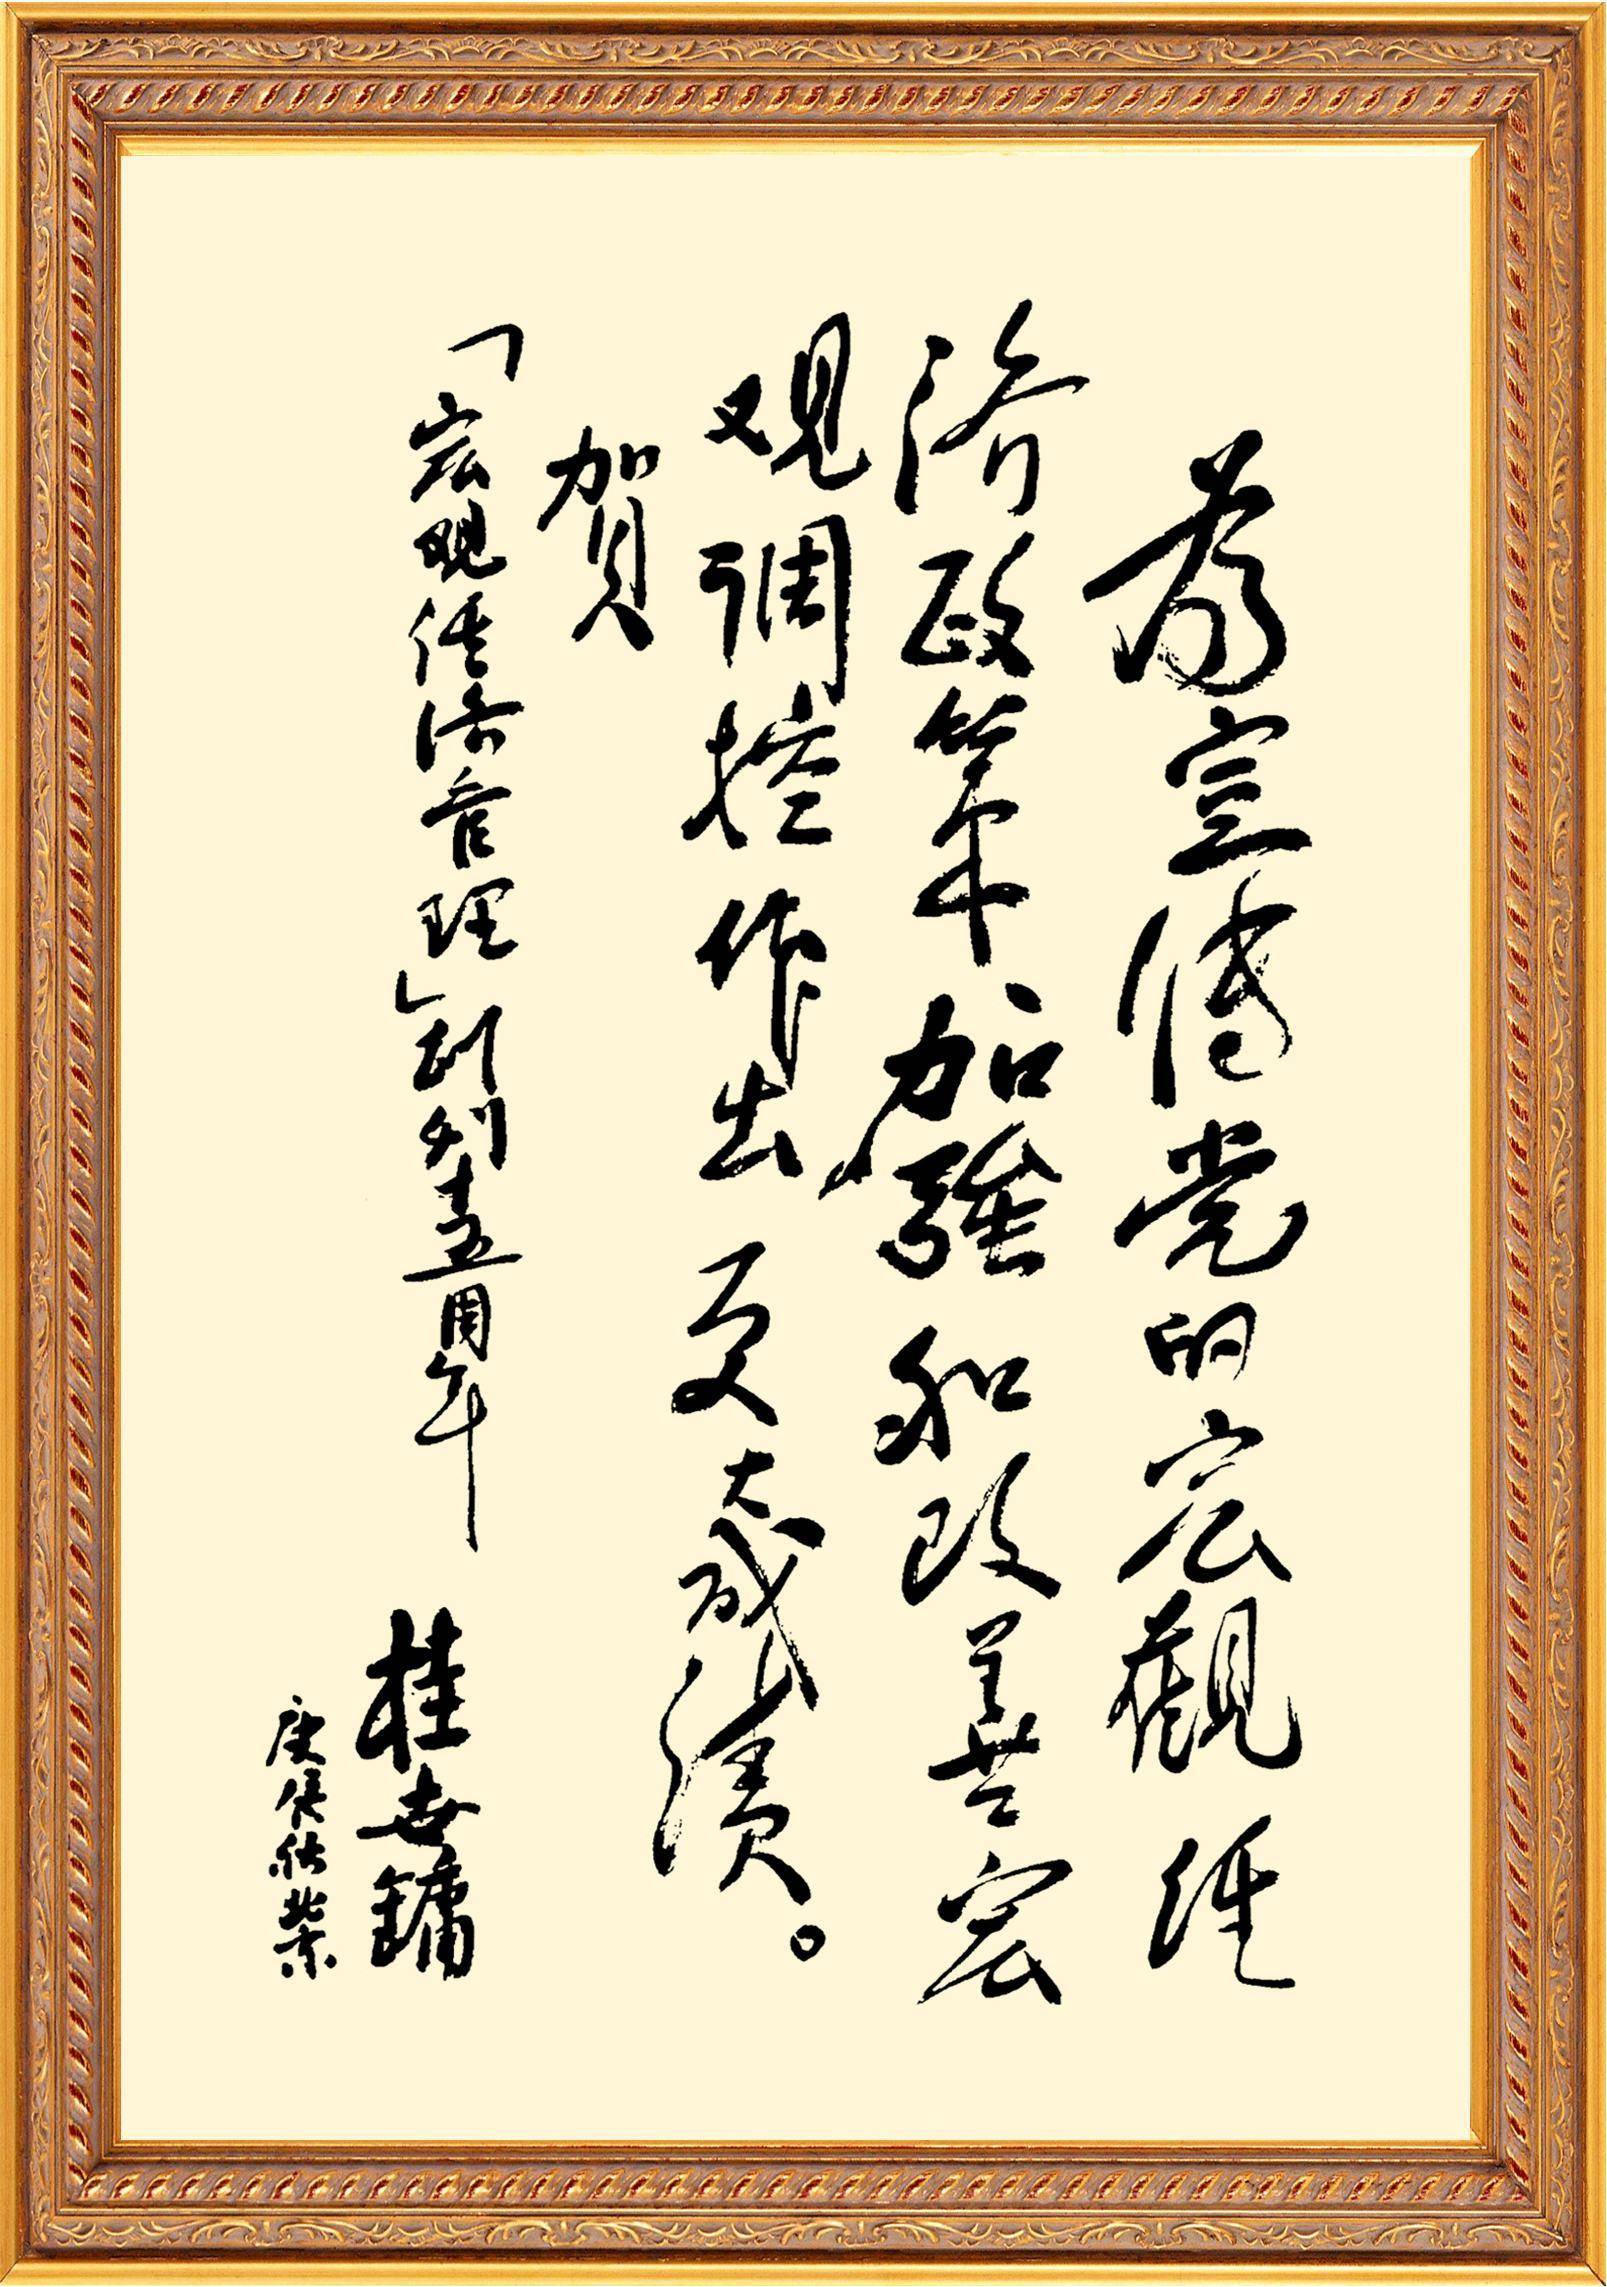 為宣傳党的宏觀经
济政策加强和改善宏
观调控作出更大成绩。
賀
「宏观经济管理」创刊十五周年
桂世鏞
庚辰秋北京